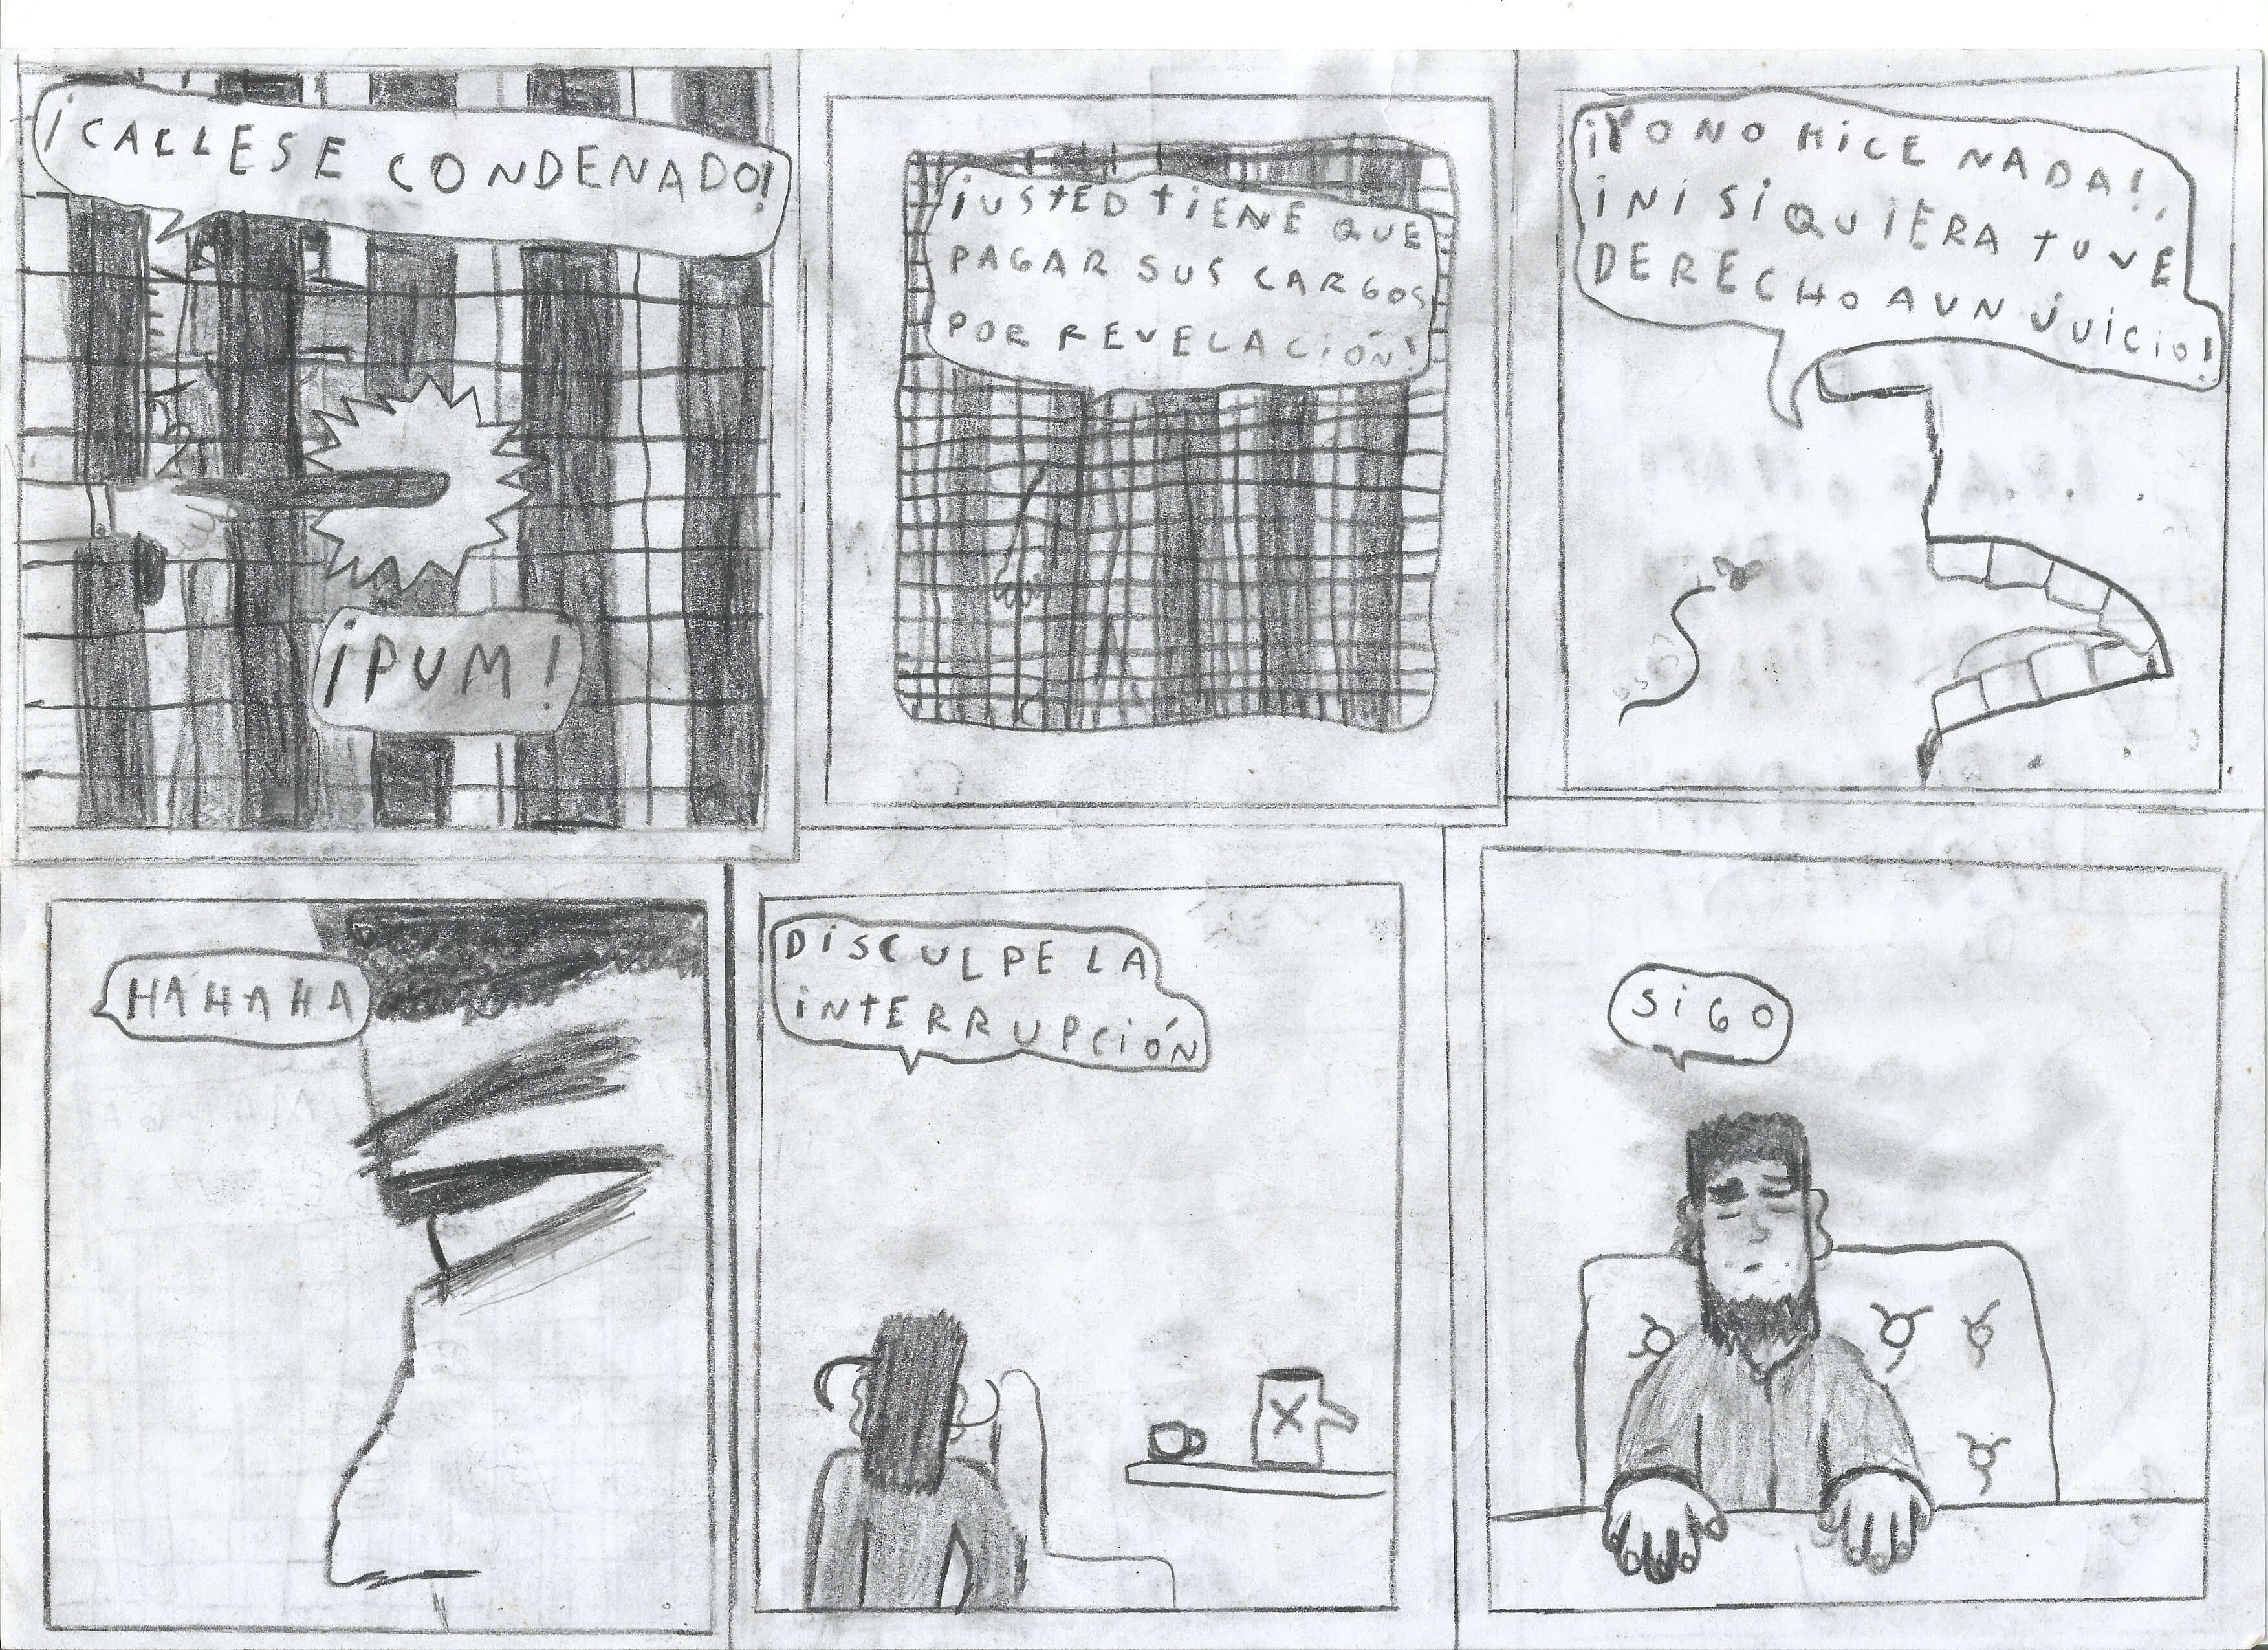 ¡CALLESE CONDENADO!
¡PUM!
¡USTED TIENE QUE
PAGAR SUS CARGOS
POR REVELACIÓN!
¡YO NO HICE NADA!,
¡NI SI QUIERA TUVE
DERECHO A UN JUICIO!
HAHAHA
DISCULPE LA
INTERRUPCIÓN
SIGO
X